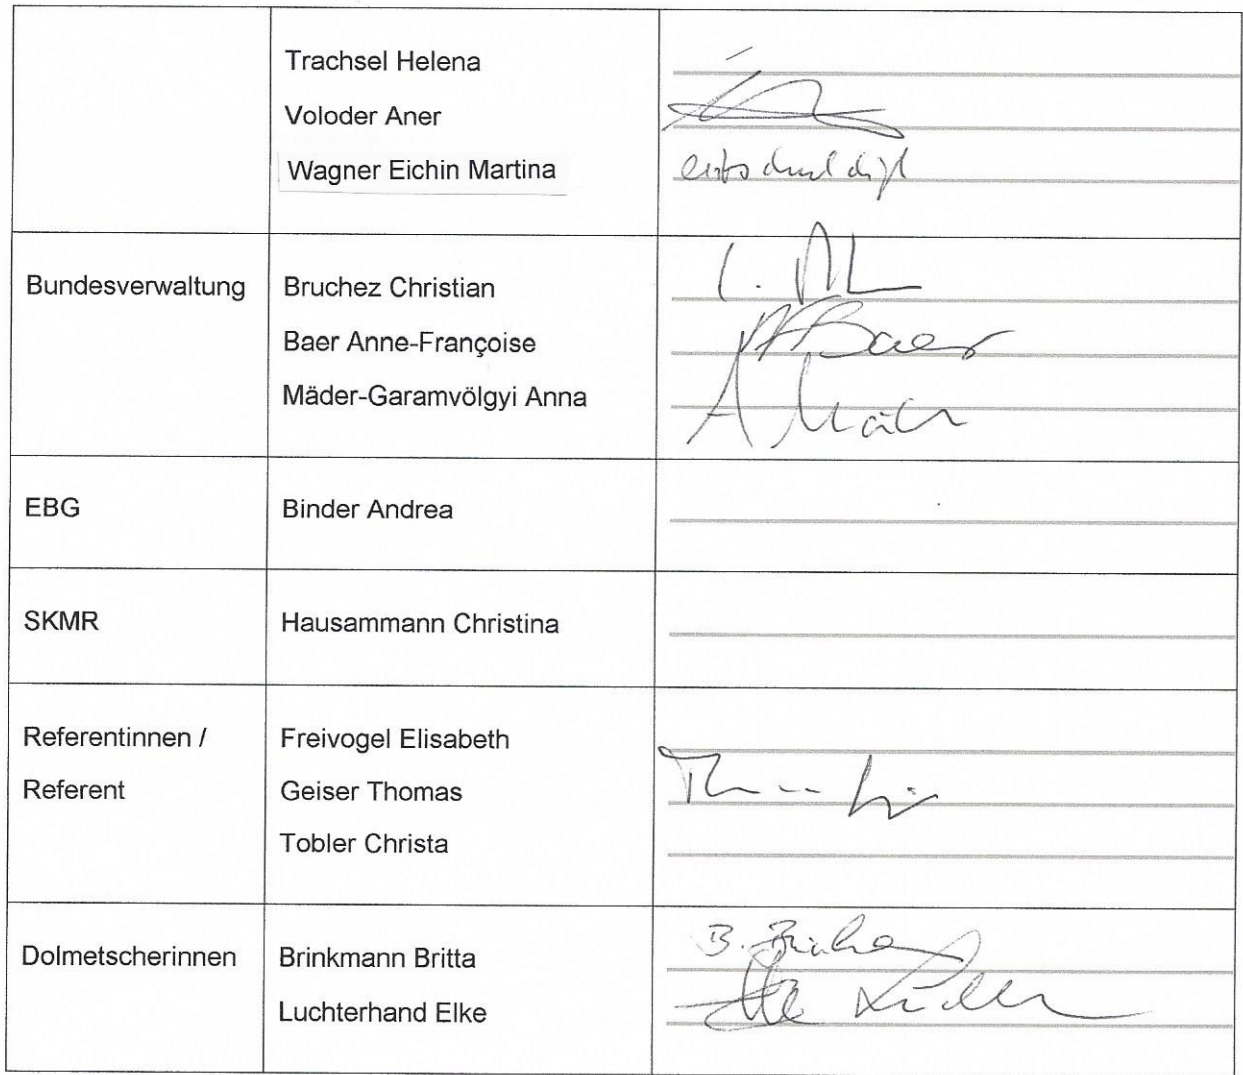 Trachsel Helena
Voloder Aner
Wagner Eichin Martina
entschuldigt
Bundesverwaltung
Bruchez Christian
Baer Anne-Françoise
AFBaer
Mäder-Garamvölgyi Anna
A. Mäder
EBG
Binder Andrea
SKMR
Hausammann Christina
Referentinnen /
Referent
Freivogel Elisabeth
Geiser Thomas
Tobler Christa
Dolmetscherinnen
Brinkmann Britta
Luchterhand Elke